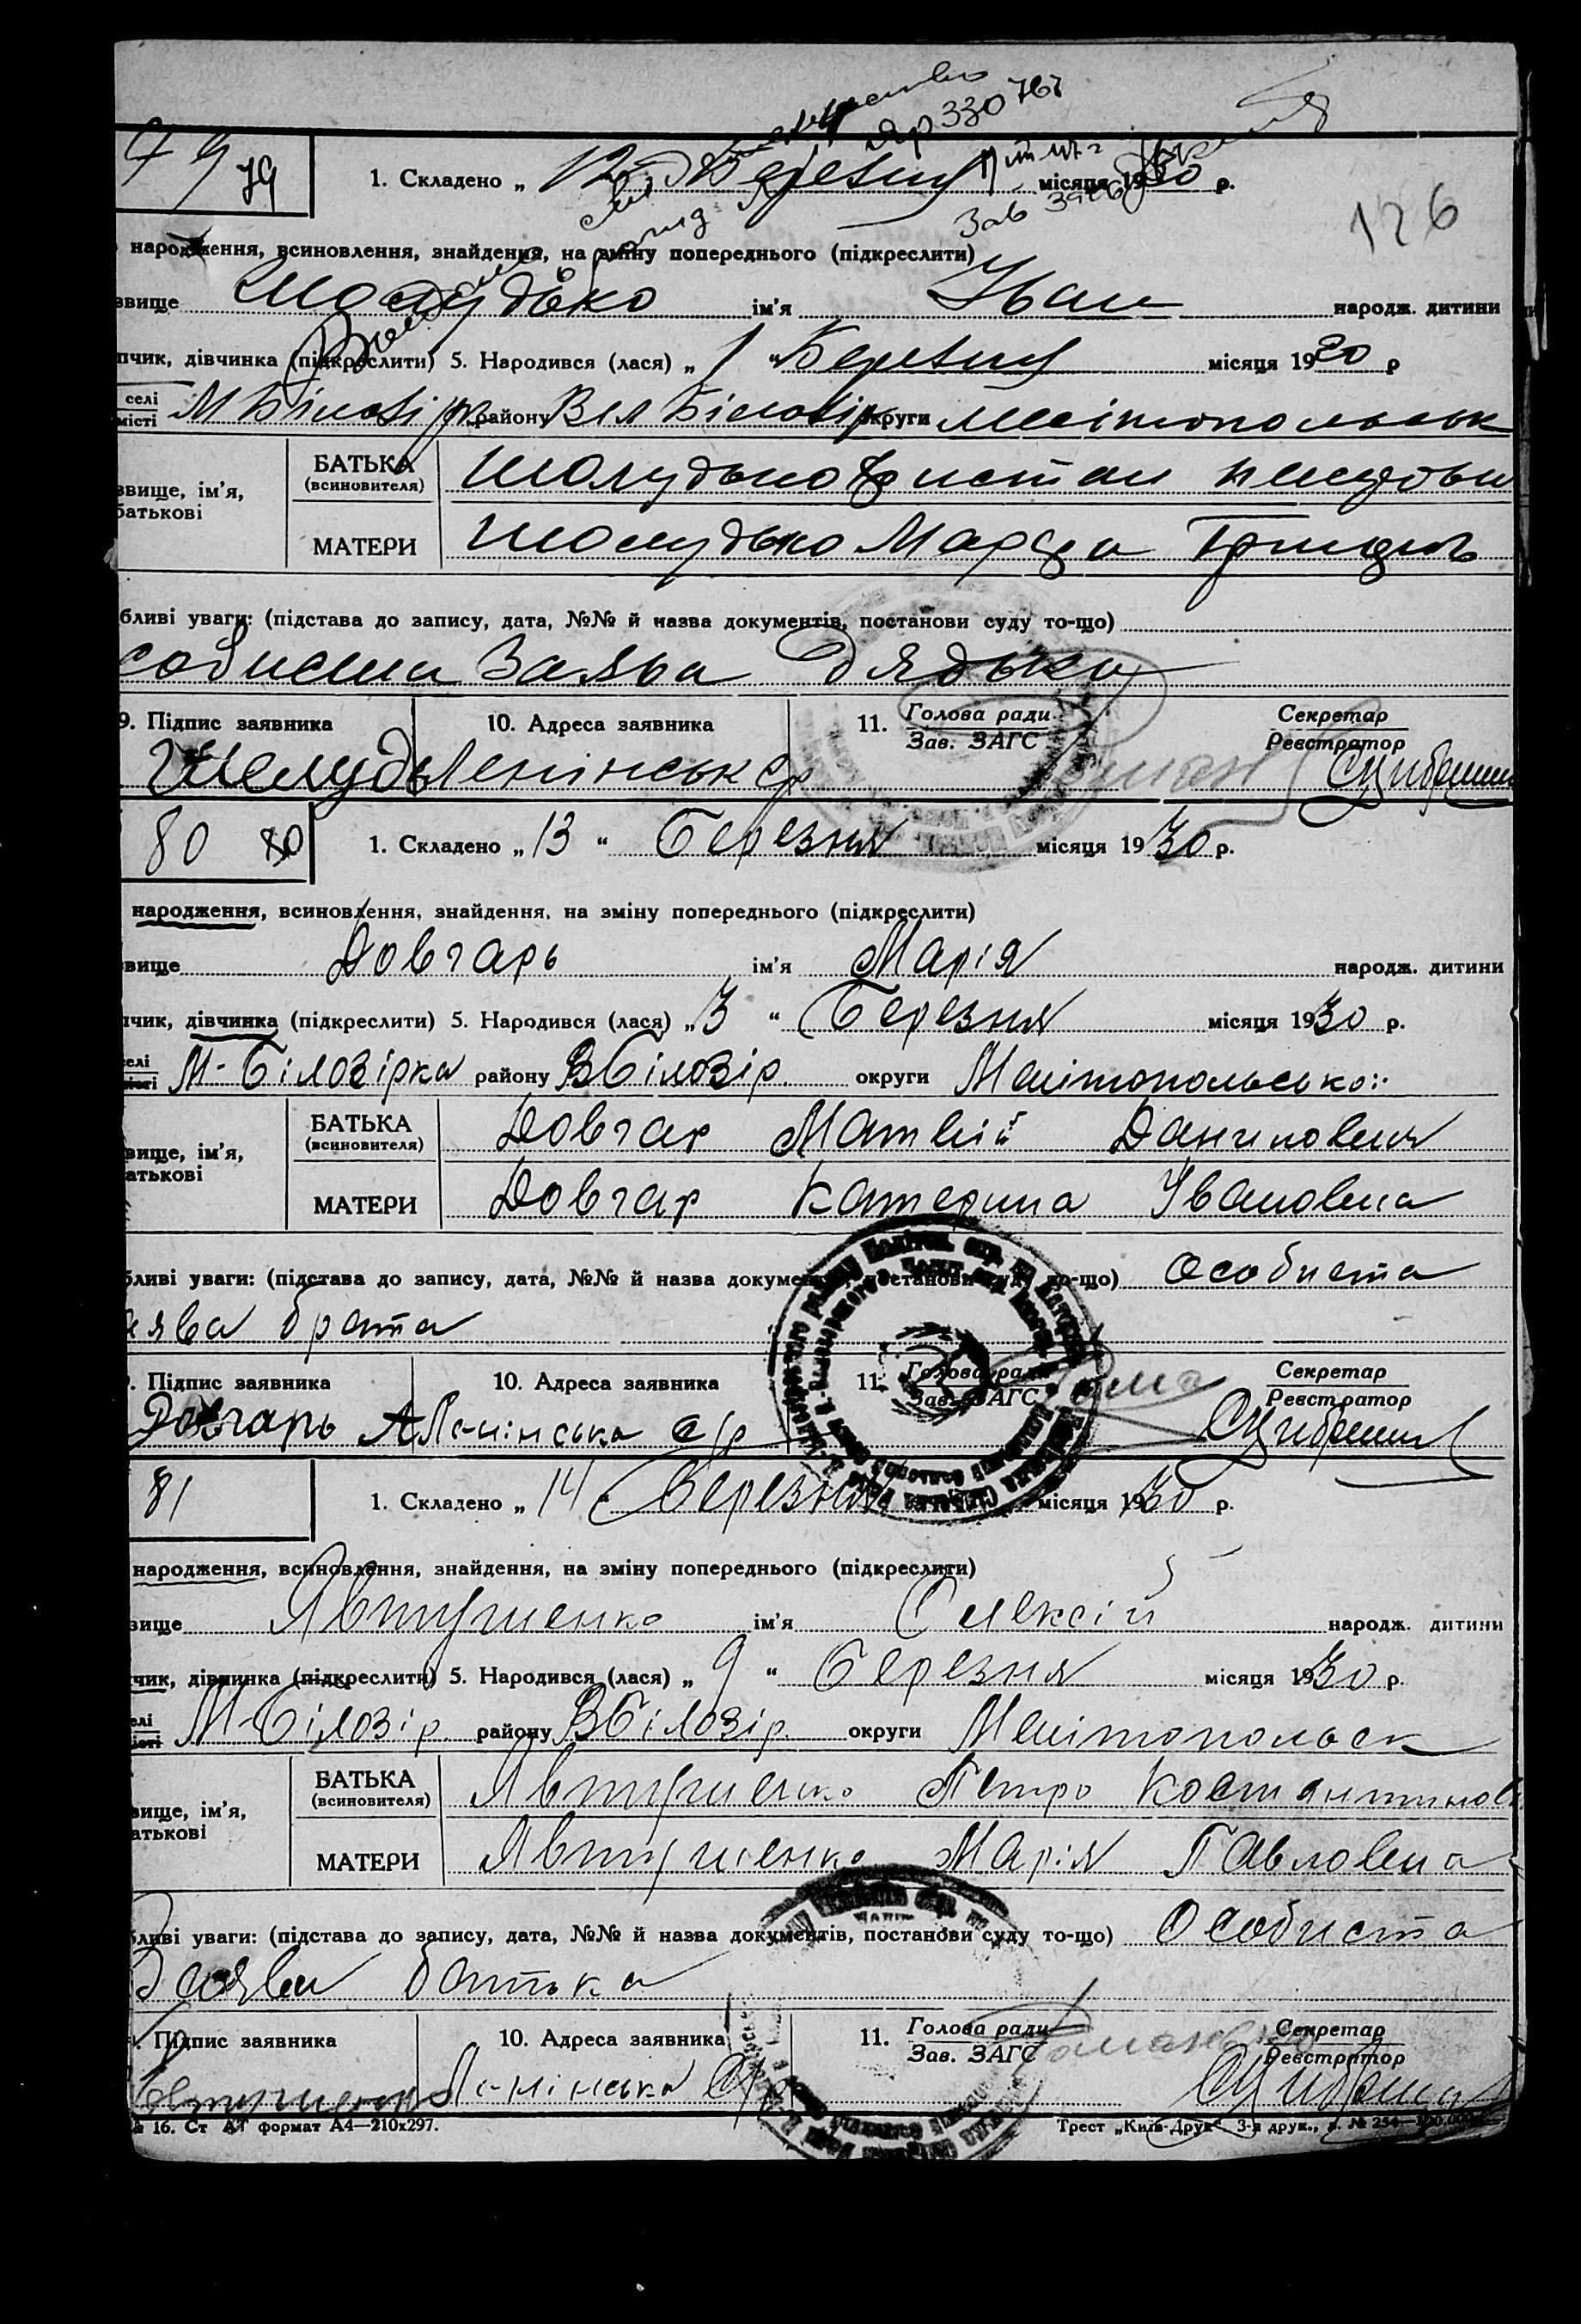 Яр 330767
79 79
1. Складено „ 12 " Березня місяця 1930 р.
126
народження, всиновлення, знайдення, на зміну попереднього (підкреслити)
звище Шолудько ім'я Іван народж. дитини
пчик, дівчинка (підкреслити) 5. Народився (лася) „ 1 " Березня місяця 19 р
селі
місті М Білозірк району Вел Білозір округи Мелітопольськ
звище, ім'я,
батькові
БАТЬКА
(всиновителя) Шолудько
МАТЕРИ Шолудько Марфа
бливі уваги: (підстава до запису, дата, №№ й назва документів, постанови суду то-що)
собиста Заява дядька
9. Підпис заявника 10. Адреса заявника 11. Голова ради Секретар
Зав. ЗАГС Реєстратор
Ленінськ с/р
80 80
1. Складено „ 13 " Березня місяця 1930 р.
народження, всиновлення, знайдення, на зміну попереднього (підкреслити)
звище Довгарь ім'я Марія народж. дитини
пчик, дівчинка (підкреслити) 5. Народився (лася) „ 3 " Березня місяця 1930 р.
селі
місті М-Білозірка району ВБілозір. округи Мелітопольської
звище, ім'я,
батькові
БАТЬКА
(всиновителя) Довгар Матвій Данилович
МАТЕРИ Довгар Катерина Івановна
бливі уваги: (підстава до запису, дата, №№ й назва документів, постанови суду то-що) Особиста
аява брата
9. Підпис заявника 10. Адреса заявника 11. Голова ради Секретар
Зав. ЗАГС Реєстратор
Довгарь А Ленінська с/р
81
1. Складено „ 14 " Березня місяця 1930 р.
народження, всиновлення, знайдення, на зміну попереднього (підкреслити)
звище Явтушенко ім'я Олексій народж. дитини
пчик, дівчинка (підкреслити) 5. Народився (лася) „ 9 " Березня місяця 1930 р.
селі
місті М-Білозір. району ВБілозір. округи Мелітопольск
звище, ім'я,
батькові
БАТЬКА
(всиновителя) Явтушенко Петро Костянтинов
МАТЕРИ Явтушенко Марія Павловна
бливі уваги: (підстава до запису, дата, №№ й назва документів, постанови суду то-що) Особиста
Заява батька
9. Підпис заявника 10. Адреса заявника 11. Голова ради Секретар
Зав. ЗАГС Реєстратор
Явтушенко Ленінська с/р
№ 16. Ст АТ формат А4—210x297. Трест „Київ-Друк“ 3-я друк., з. № 254—100.000